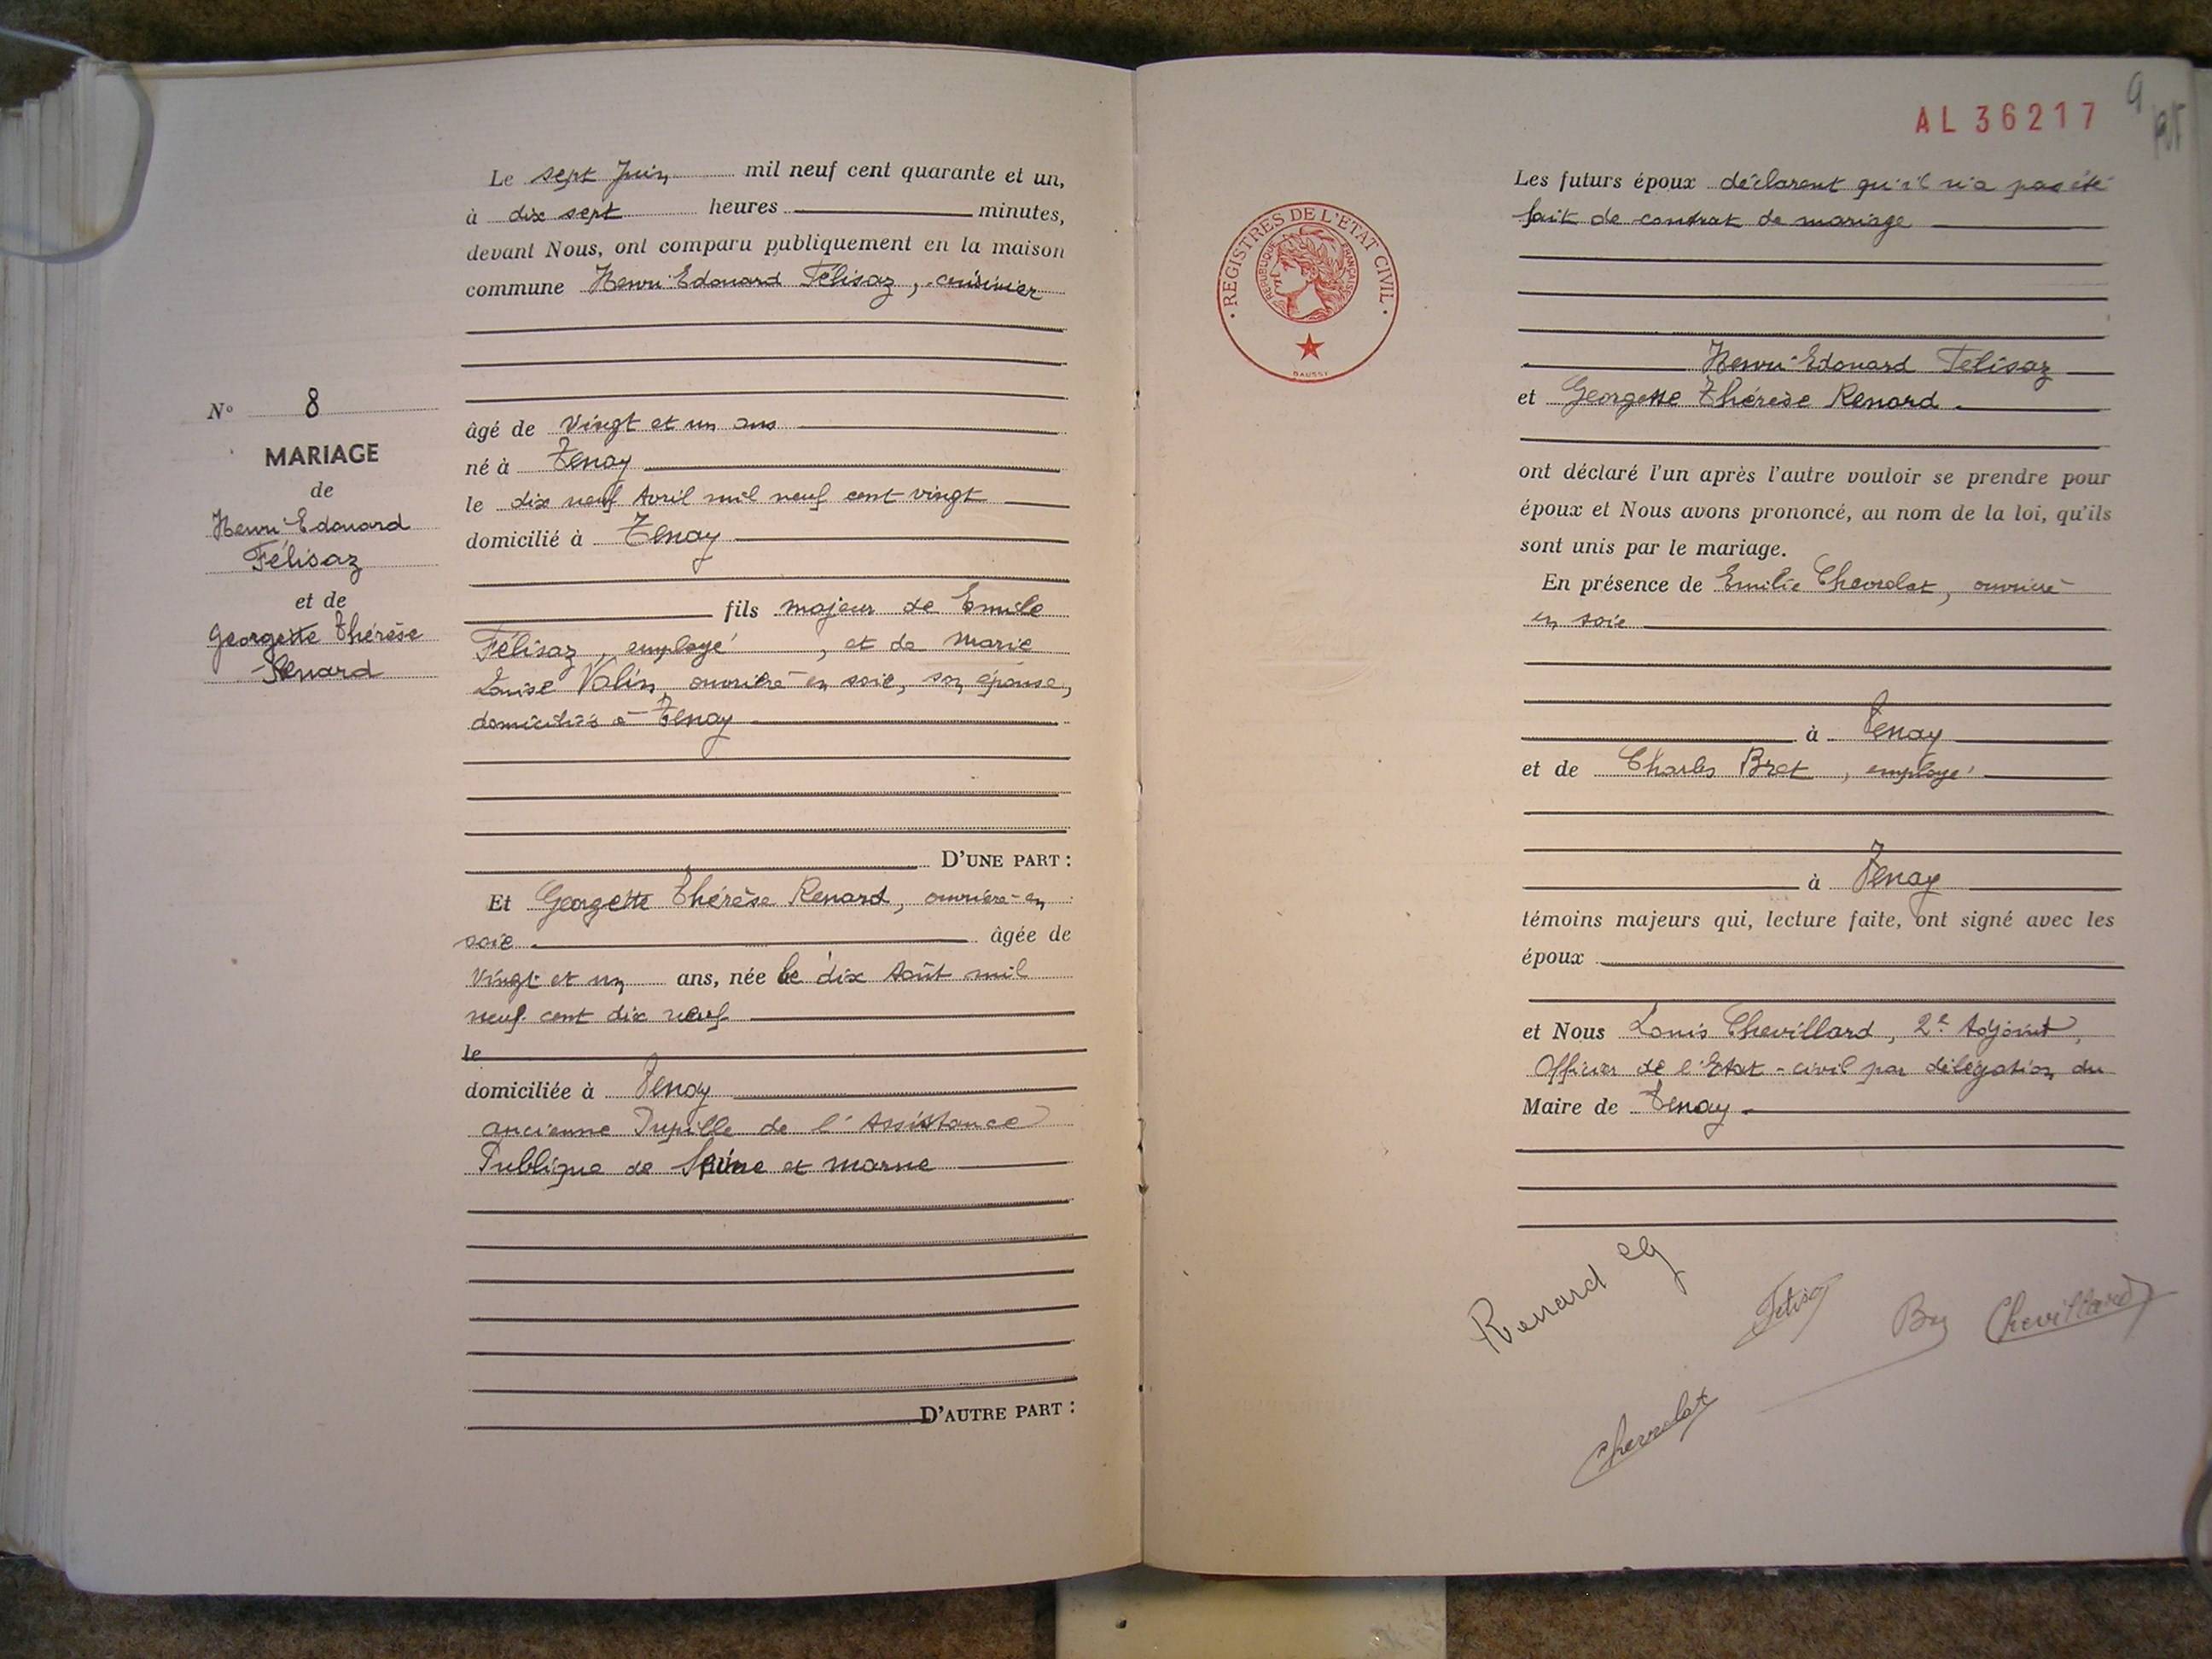 Le sept Juin mil neuf cent quarante et un,
à dix sept heures minutes,
devant Nous, ont comparu publiquement en la maison
commune Henri Edouard Félisaz, cuisinier
N° 8
MARIAGE
de
Henri Edouard
Félisaz
et de
Georgette Thérèse
Renard
âgé de Vingt et un ans
né à Tenay
le dix neuf Avril mil neuf cent vingt
domicilié à Tenay
fils majeur de Emile
Félisaz, employé, et de Marie
Louise Valin, ouvrière en soie, son épouse,
domiciliés à Tenay
D'UNE PART :
Et Georgette Thérèse Renard, ouvrière en
soie âgée de
Vingt et un ans, née le dix Août mil
neuf cent dix neuf
le
domiciliée à Tenay
ancienne Pupille de l'Assistance
Publique de Seine et Marne
D'AUTRE PART :
AL 36217
9
REGISTRES DE L'ETAT CIVIL
REPUBLIQUE FRANÇAISE
DAUSSY
Les futurs époux déclarent qu'il n'a pas été
fait de contrat de mariage
Henri Edouard Félisaz
et Georgette Thérèse Renard
ont déclaré l'un après l'autre vouloir se prendre pour
époux et Nous avons prononcé, au nom de la loi, qu'ils
sont unis par le mariage.
En présence de Emilie Chevrolat, ouvrière
en soie
à Tenay
et de Charles Bret, employé
à Tenay
témoins majeurs qui, lecture faite, ont signé avec les
époux
et Nous Louis Chevillard, 2e Adjoint,
Officier de l'Etat-civil par délégation du
Maire de Tenay
Renard G
Felisaz
Chevillard
Chevrolat